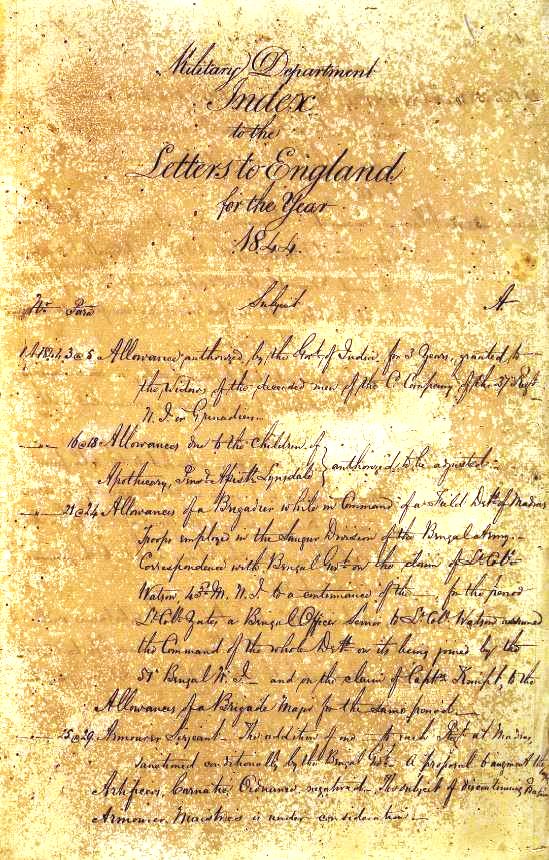 Military Department
Index
to the
Letters to England
for the Year
1844.
No. Para Subject A.
1 of 1844, 3 @ 5 Allowance, authorized by the Govt. of India, for 3 Years, granted to
the Widows of the deceased men of the C. Company of the 37 Regt.
N. I. or Grenadiers.
" 16 @ 18 Allowances due to the Children of
Apothecary, and Asstt. Lonsdale } authorized to be adjusted.
" 21 @ 24 Allowances of a Brigadier while in Command of a Field Dett. of Madras
Troops employed in the Saugor Division of the Bengal Army.
Correspondence with Bengal Govt. on the claim of Lt. Col.
Watson 43rd M. N. I. to a continuance of the —, for the period
Lt. Col. Yates, a Bengal Officer Senior to Lt. Col. Watson assumed
the Command of the whole Dett. on its being joined by the
51 Bengal N. I. and on the claim of Captn. to the
Allowances of a Brigade Major for the same period.
" 25 @ 29 Armourer Serjeant. The addition of one to each at Madras,
sanctioned conditionally by the Bengal Govt. A proposal to augment the
Artificers, Carnatic Ordnance, negatived. The subject of discontinuing
Armourer Maistries is under consideration.